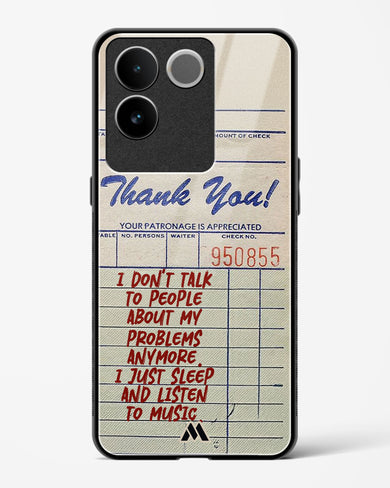 MOUNT OF CHECK
Thank You!
YOUR PATRONAGE IS APPRECIATED
ABLE NO. PERSONS WAITER CHECK NO.
950855
I DON'T TALK
TO PEOPLE
ABOUT MY
PROBLEMS
ANYMORE.
I JUST SLEEP
AND LISTEN
TO MUSIC